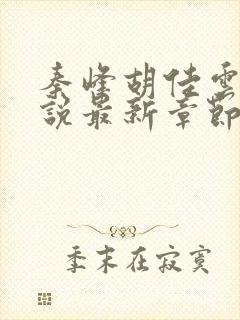 秦峰胡佳雲
說最新章節
季末在寂寞